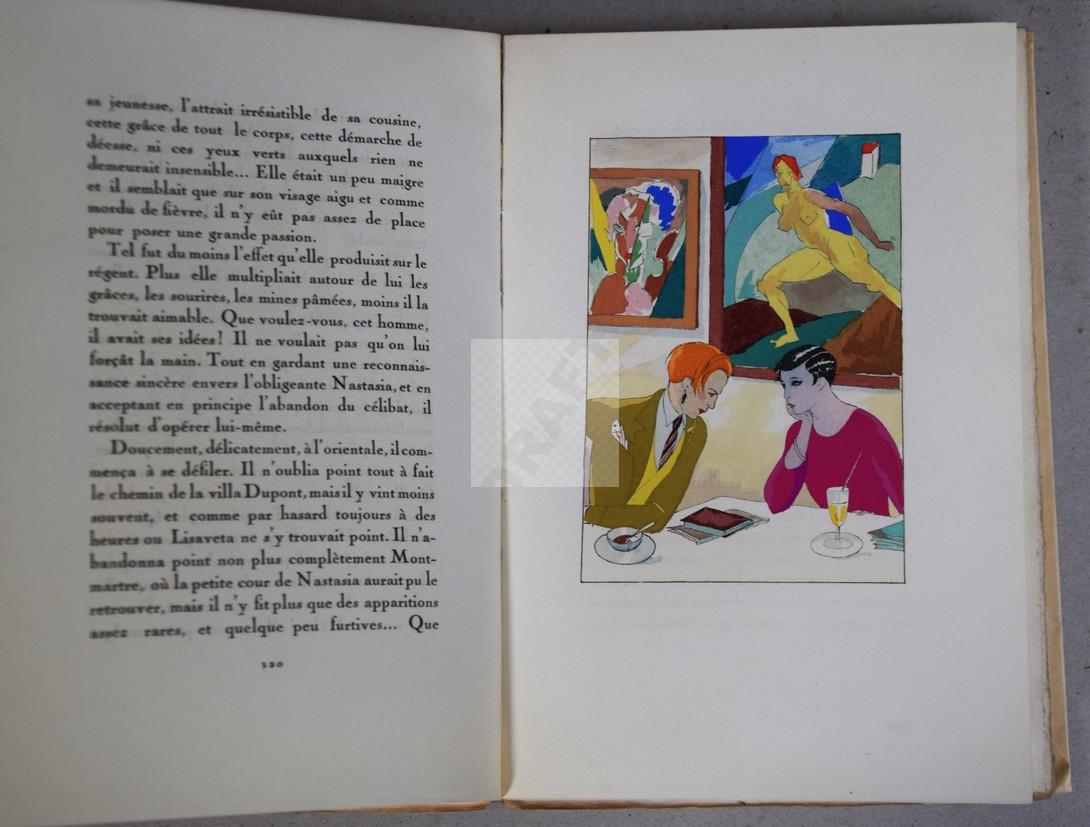 sa jeunesse, l'attrait irrésistible de sa cousine,
cette grâce de tout le corps, cette démarche de
déesse, ni ces yeux verts auxquels rien ne
demeurait insensible... Elle était un peu maigre
et il semblait que sur son visage aigu et comme
mordu de fièvre, il n'y eût pas assez de place
pour poser une grande passion.
Tel fut du moins l'effet qu'elle produisit sur le
régent. Plus elle multipliait autour de lui les
grâces, les sourires, les mines pâmées, moins il la
trouvait aimable. Que voulez-vous, cet homme,
il avait ses idées! Il ne voulait pas qu'on lui
forçât la main. Tout en gardant une reconnais-
sance sincère envers l'obligeante Nastasia, et en
acceptant en principe l'abandon du célibat, il
résolut d'opérer lui-même.
Doucement, délicatement, à l'orientale, il com-
mença à se défiler. Il n'oublia point tout à fait
le chemin de la villa Dupont, mais il y vint moins
souvent, et comme par hasard toujours à des
heures ou Lisaveta ne s'y trouvait point. Il n'a-
bandonna point non plus complètement Mont-
martre, où la petite cour de Nastasia aurait pu le
retrouver, mais il n'y fit plus que des apparitions
assez rares, et quelque peu furtives... Que
120